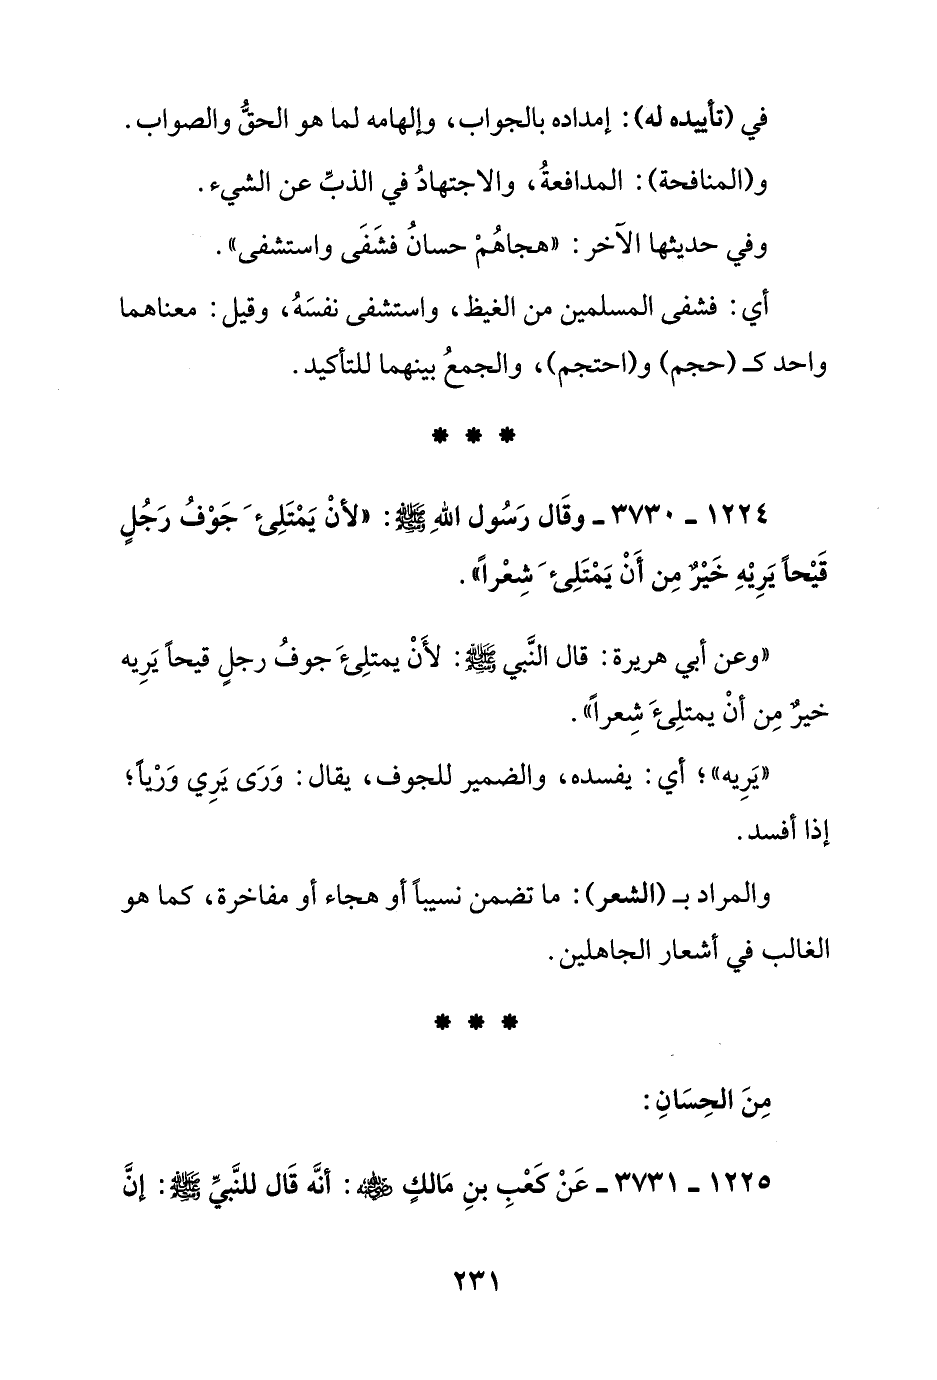 في (تأييده له): إمداده بالجواب، وإلهامه لما هو الحقُّ والصواب.
و(المنافحة): المدافعةُ، والاجتهادُ في الذبِّ عن الشيء.
وفي حديثها الآخر: «هجاهُمْ حسانُ فشَفَى واستشفى».
أي: فشفى المسلمين من الغيظ، واستشفى نفسَهُ، وقيل: معناهما
واحد كـ (حجم) و(احتجم)، والجمعُ بينهما للتأكيد.
* * *
١٢٢٤ - ٣٧٣٠ - وقَال رَسُول اللهِ ﷺ: «لأنْ يَمْتَلِئَ جَوْفُ رَجُلٍ
قَيْحاً يَرِيْهِ خَيْرٌ مِن أَنْ يَمْتَلِئَ شِعْراً».
«وعن أبي هريرة: قال النَّبي ﷺ: لأَنْ يمتلِئَ جوفُ رجلٍ قيحاً يَرِيه
خيرٌ مِن أنْ يمتلِئَ شِعراً».
«يَرِيه»؛ أي: يفسده، والضمير للجوف، يقال: وَرَى يَرِي وَرْياً؛
إذا أفسد.
والمراد بـ (الشعر): ما تضمن نسيباً أو هجاء أو مفاخرة، كما هو
الغالب في أشعار الجاهلين.
* * *
مِنَ الحِسَانِ:
١٢٢٥ - ٣٧٣١ - عَنْ كَعْبِ بنِ مَالكٍ ﵁: أنَّه قَال للنَّبيِّ ﷺ: إنَّ
٢٣١